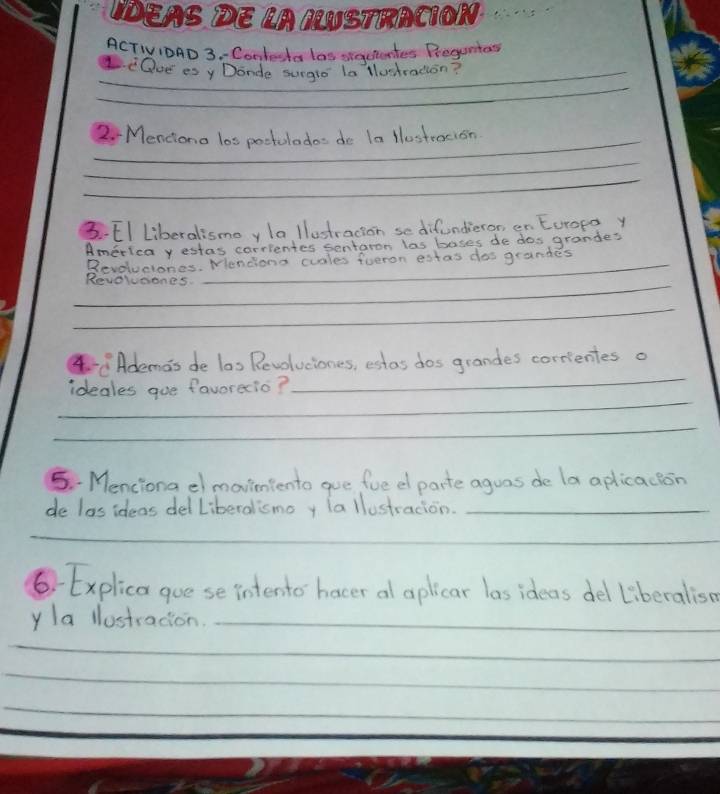 IDEAS DE LA ILUSTRACION
ACTIVIDAD 3.- Contesta las siguientes Preguntas
1.-¿Que es y Dónde surgió la Ilustración?
2.- Menciona los postulados de la Ilustración.
3.- El Liberalismo y la Ilustración se difundieron en Europa y
América y estas corrientes sentaron las bases de dos grandes
Revoluciones. Menciona cuales fueron estas dos grandes
Revoluciones.
4.-¿Además de las Revoluciones, estas dos grandes corrientes o
ideales que favoreció?
5.- Menciona el movimiento que fue el parte aguas de la aplicación
de las ideas del Liberalismo y la Ilustración.
6.- Explica que se intentó hacer al aplicar las ideas del Liberalism
y la Ilustración.